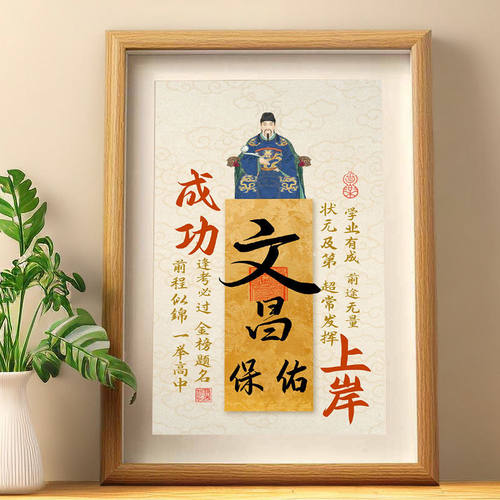 成功
上岸
文昌
保佑
学业有成 前途无量
状元及第 超常发挥
逢考必过 金榜题名
前程似锦 一举高中